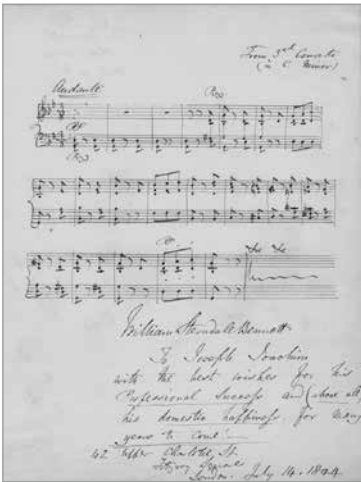 From 3rd Concerto
(in C Minor)
Andante
William Sterndale Bennett
To Joseph Joachim
with the best wishes for his
Professional Success and (above all)
his domestic happiness, for many
years to come!
42. Upper Charlotte St.
Fitzroy Square
London. July 14. 1844